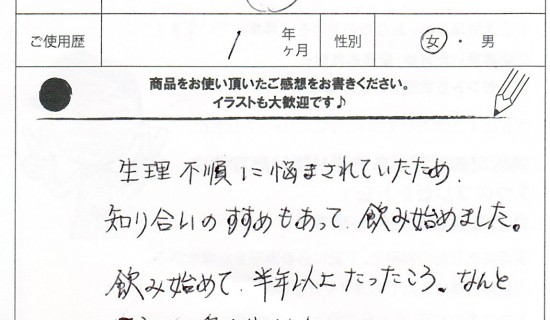 ご使用歴 1 年 ヶ月 性別 女・男
商品をお使い頂いたご感想をお書きください。
イラストも大歓迎です♪
生理不順に悩まされていたため、
知り合いのすすめもあって、飲み始めました。
飲み始めて、半年以上たったころ。なんと